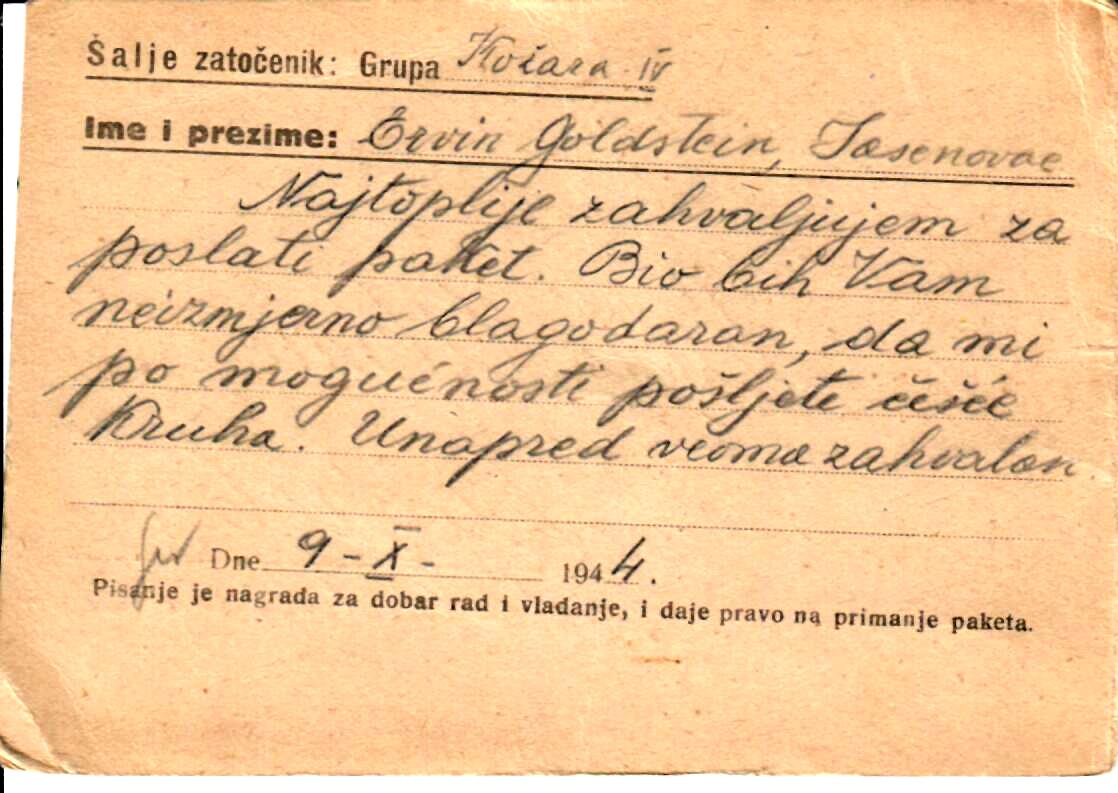 Šalje zatočenik: Grupa Kožara IV
Ime i prezime: Ervin Goldstein, Jasenovac
Najtoplije zahvaljujem za
poslati paket. Bio bih Vam
neizmjerno blagodaran, da mi
po mogućnosti pošljete češće
Kruha. Unapred veoma zahvalan
Dne 9-X- 1944.
Pisanje je nagrada za dobar rad i vladanje, i daje pravo na primanje paketa.